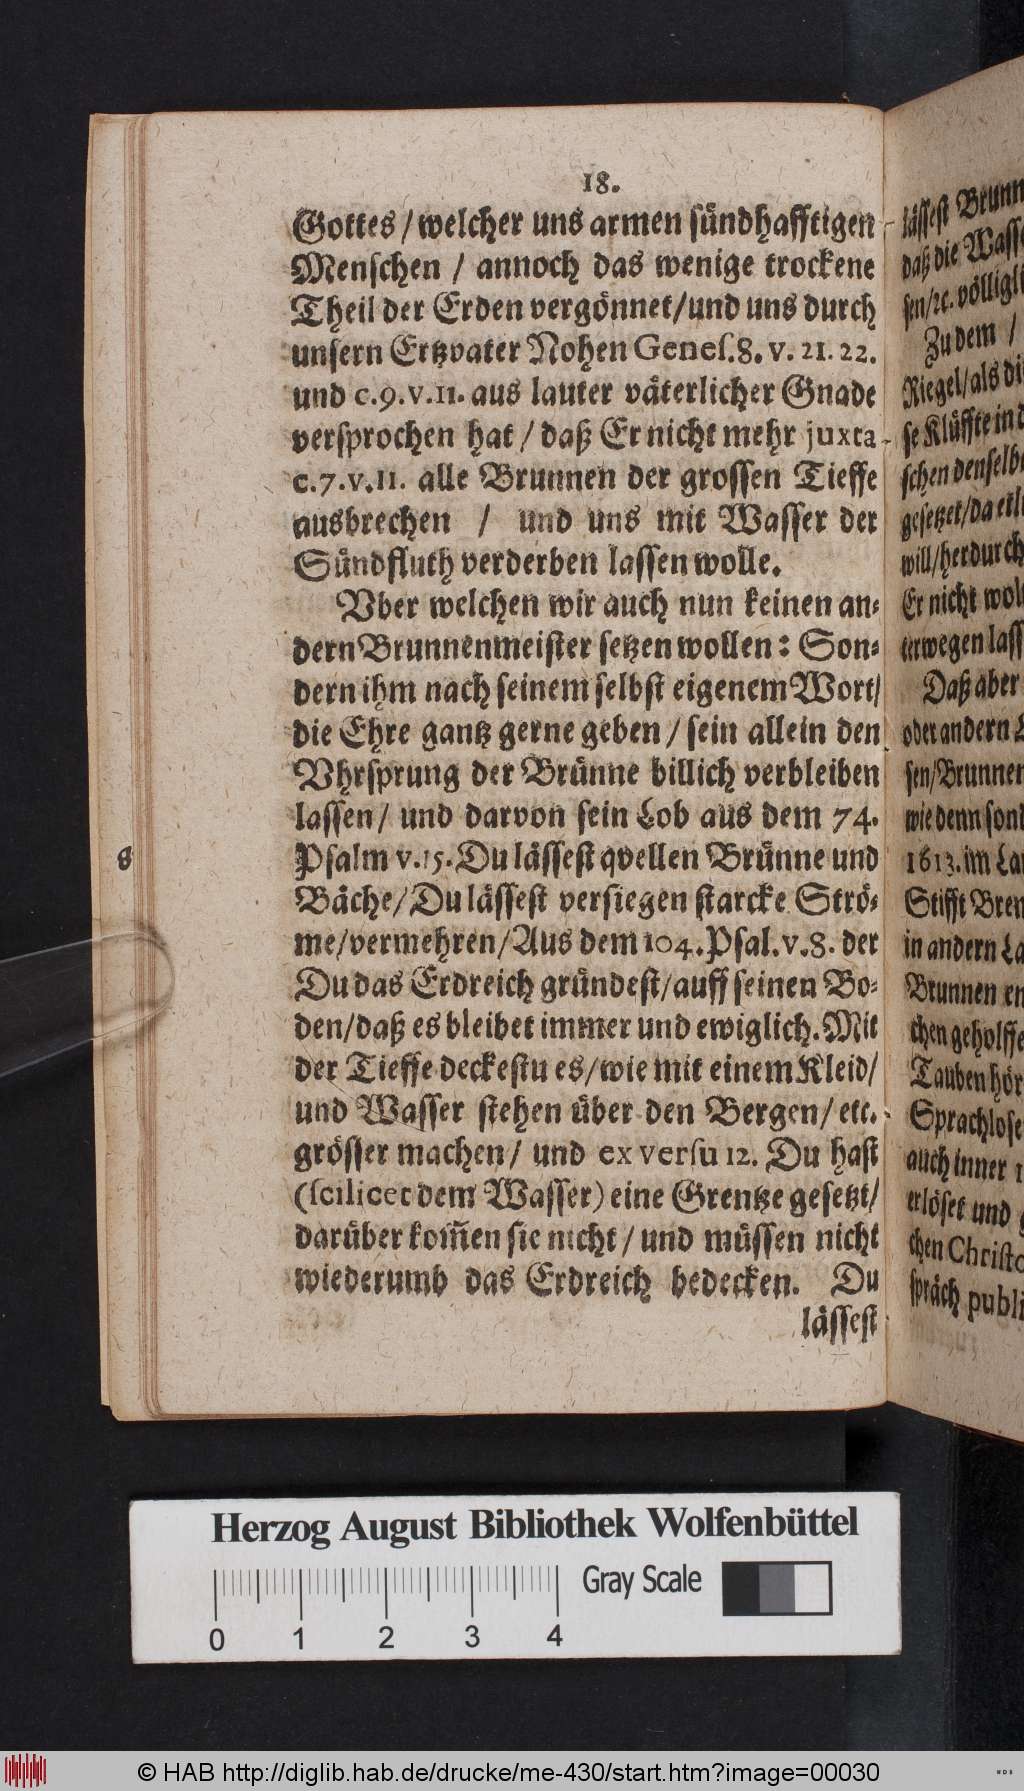 18.
Gottes / welcher uns armen sündhafftigen
Menschen / annoch das wenige trockene
Theil der Erden vergönnet/und uns durch
unsern Ertzvater Nohen Genes.8. v. 21. 22.
und c.9.v.11. aus lauter väterlicher Gnade
versprochen hat / daß Er nicht mehr juxta
c.7.v.11. alle Brunnen der grossen Tieffe
ausbrechen / und uns mit Wasser der
Sündfluth verderben lassen wolle.
Vber welchen wir auch nun keinen an⸗
dern Brunnenmeister setzen wollen: Son⸗
dern ihm nach seinem selbst eigenem Wort/
die Ehre gantz gerne geben / sein allein den
Vhrsprung der Brünne billich verbleiben
lassen / und darvon sein Lob aus dem 74.
Psalm v.15. Du lässest qvellen Brünne und
Bäche/Du lässest versiegen starcke Strö⸗
me/vermehren/Aus dem 104.Psal.v.8. der
Du das Erdreich gründest/auff seinen Bo⸗
den/daß es bleibet immer und ewiglich. Mit
der Tieffe deckestu es/wie mit einem Kleid/
und Wasser stehen über den Bergen/ etc.
grösser machen/ und ex versu 12. Du hast
(scilicet dem Wasser) eine Grentze gesetzt/
darüber kom̃en sie nicht / und müssen nicht
wiederumb das Erdreich bedecken. Du
lässest
8
lässest
daß die
sen/ꝛc.
Zu dem /
Riegel/als
se Klüffte in
schen
gesetzet/da
will/herdurch
Er nicht
terwegen
Daß aber
oder andern
sen/Brunnen
wie denn
1613. im
Stifft
in andern
Brunnen
chen
Tauben
auch inner
erlöset und
chen
spräch
Herzog August Bibliothek Wolfenbüttel
Gray Scale
0 1 2 3 4
© HAB http://diglib.hab.de/drucke/me-430/start.htm?image=00030